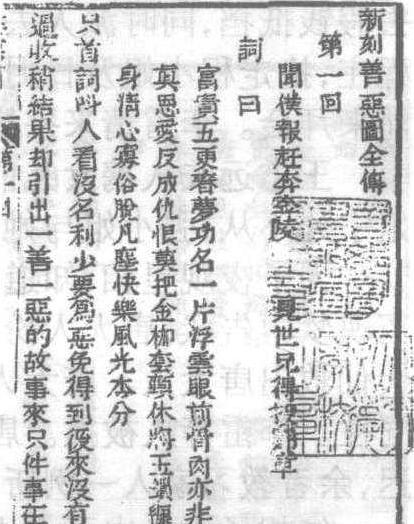 新刻善惡圖全傳
第一回
聞俟報赶奔金陵 見世兄得單
詞曰
富貴五更春夢功名一片浮雲眼前骨肉亦非
眞恩愛反成仇恨莫把金枷套頸休將玉鎖纏
身清心寡俗脫凡塵快樂風光本分
只首詞呌人看沒名利少要爲惡免得到後來沒有
過收稍結果却引出一善一惡的故事來只件事在
第一回